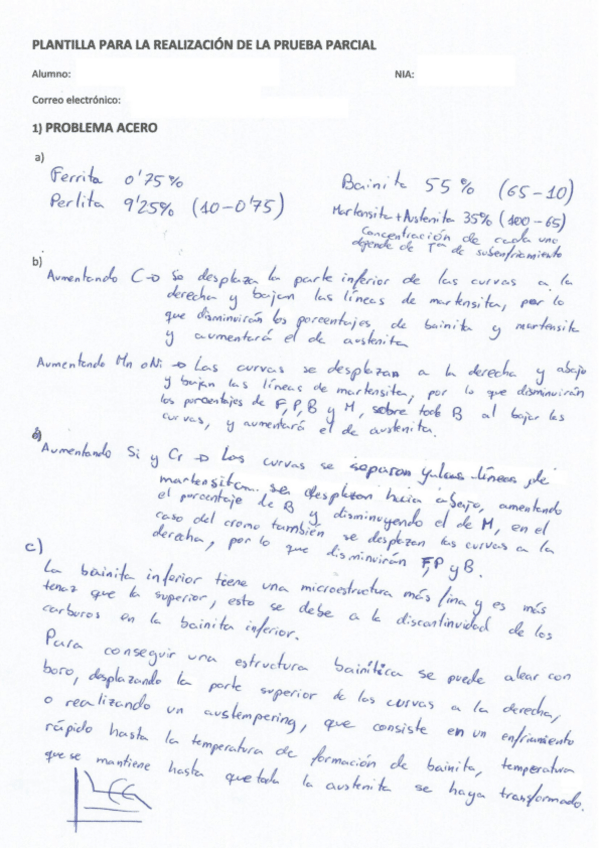 PLANTILLA PARA LA REALIZACIÓN DE LA PRUEBA PARCIAL
Alumno:
NIA:
Correo electrónico:
1) PROBLEMA ACERO
a)
Ferrita 0'75%
Perlita 9'25% (10-0'75)
Bainita 55% (65-10)
Martensita + Austenita 35% (100-65)
Concentración de cada uno
depende de Tª de subenfriamiento
b)
Aumentando C → Se desplaza la parte inferior de las curvas a la
derecha y bajan las líneas de martensita, por lo
que disminuirán los porcentajes de bainita y martensita
y aumentará el de austenita
Aumentando Mn o Ni → Las curvas se desplazan a la derecha y abajo
y bajan las líneas de martensita, por lo que disminuirán
los porcentajes de F, P, B y M, sobre todo B al bajar las
curvas, y aumentará el de austenita.
Aumentando Si y Cr → Las curvas se separan y las líneas de
martensita se desplazan hacia abajo, amentando
el porcentaje de B y disminuyendo el de M, en el
caso del cromo también se desplazan las curvas a la
derecha, por lo que disminuirán F, P y B.
c)
La bainita inferior tiene una microestructura más fina y es más
tenaz que la superior, esto se debe a la discontinuidad de los
carburos en la bainita inferior.
Para conseguir una estructura bainítica se puede alear con
boro, desplazando la parte superior de las curvas a la derecha,
o realizando un austempering, que consiste en un enfriamiento
rápido hasta la temperatura de formación de bainita, temperatura
que se mantiene hasta que toda la austenita se haya transformado.